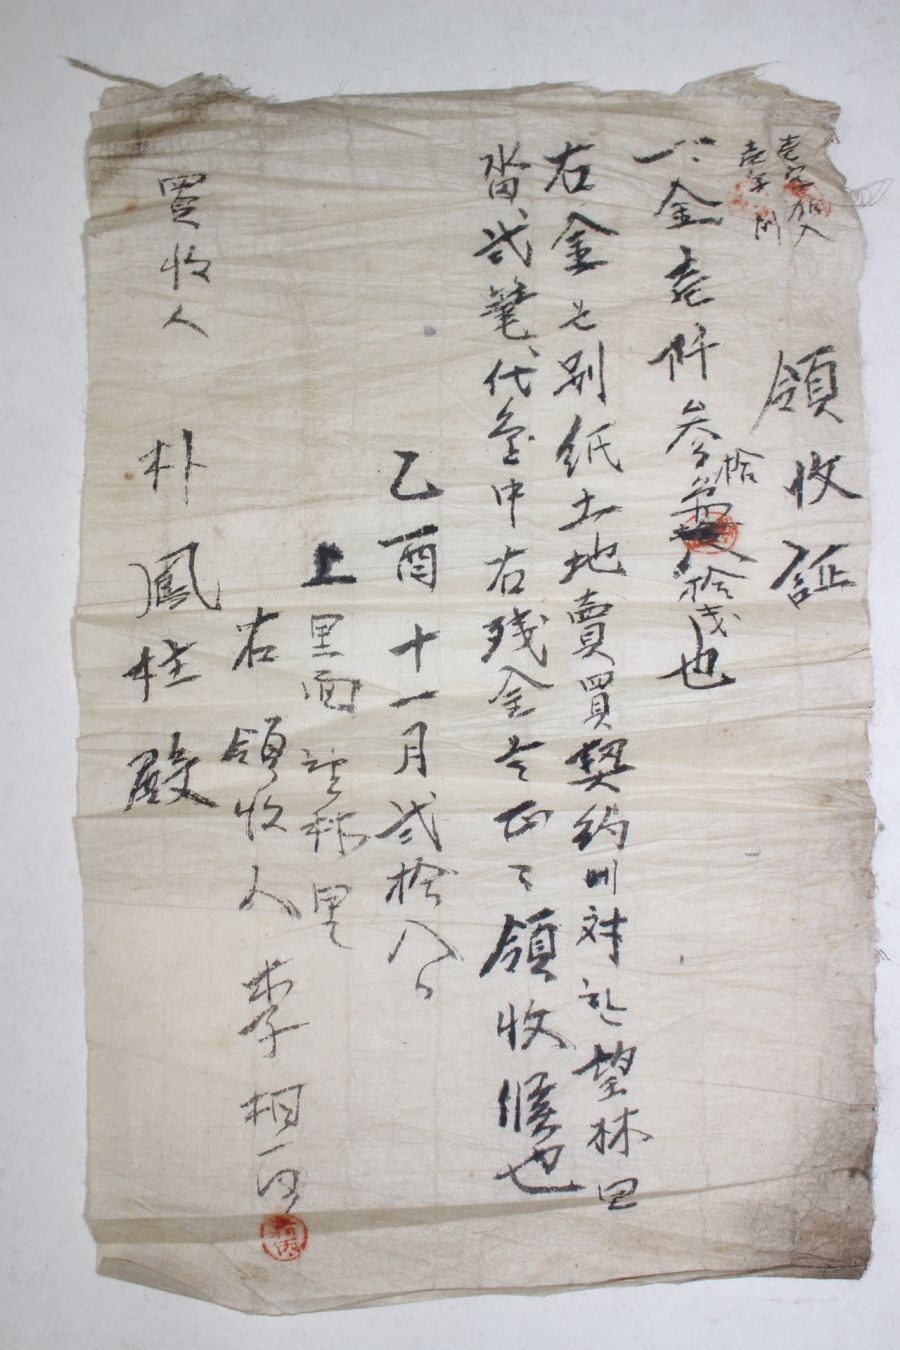 壹字加入
壹字
領收証
一、金壹仟参拾也
右金은別紙土地賣買契約에對한望林里
畓貳筆代金中右残金正領收候也
乙酉十一月貳拾八日
上里面望林里
右領收人 李相
買收人 朴鳳柱殿